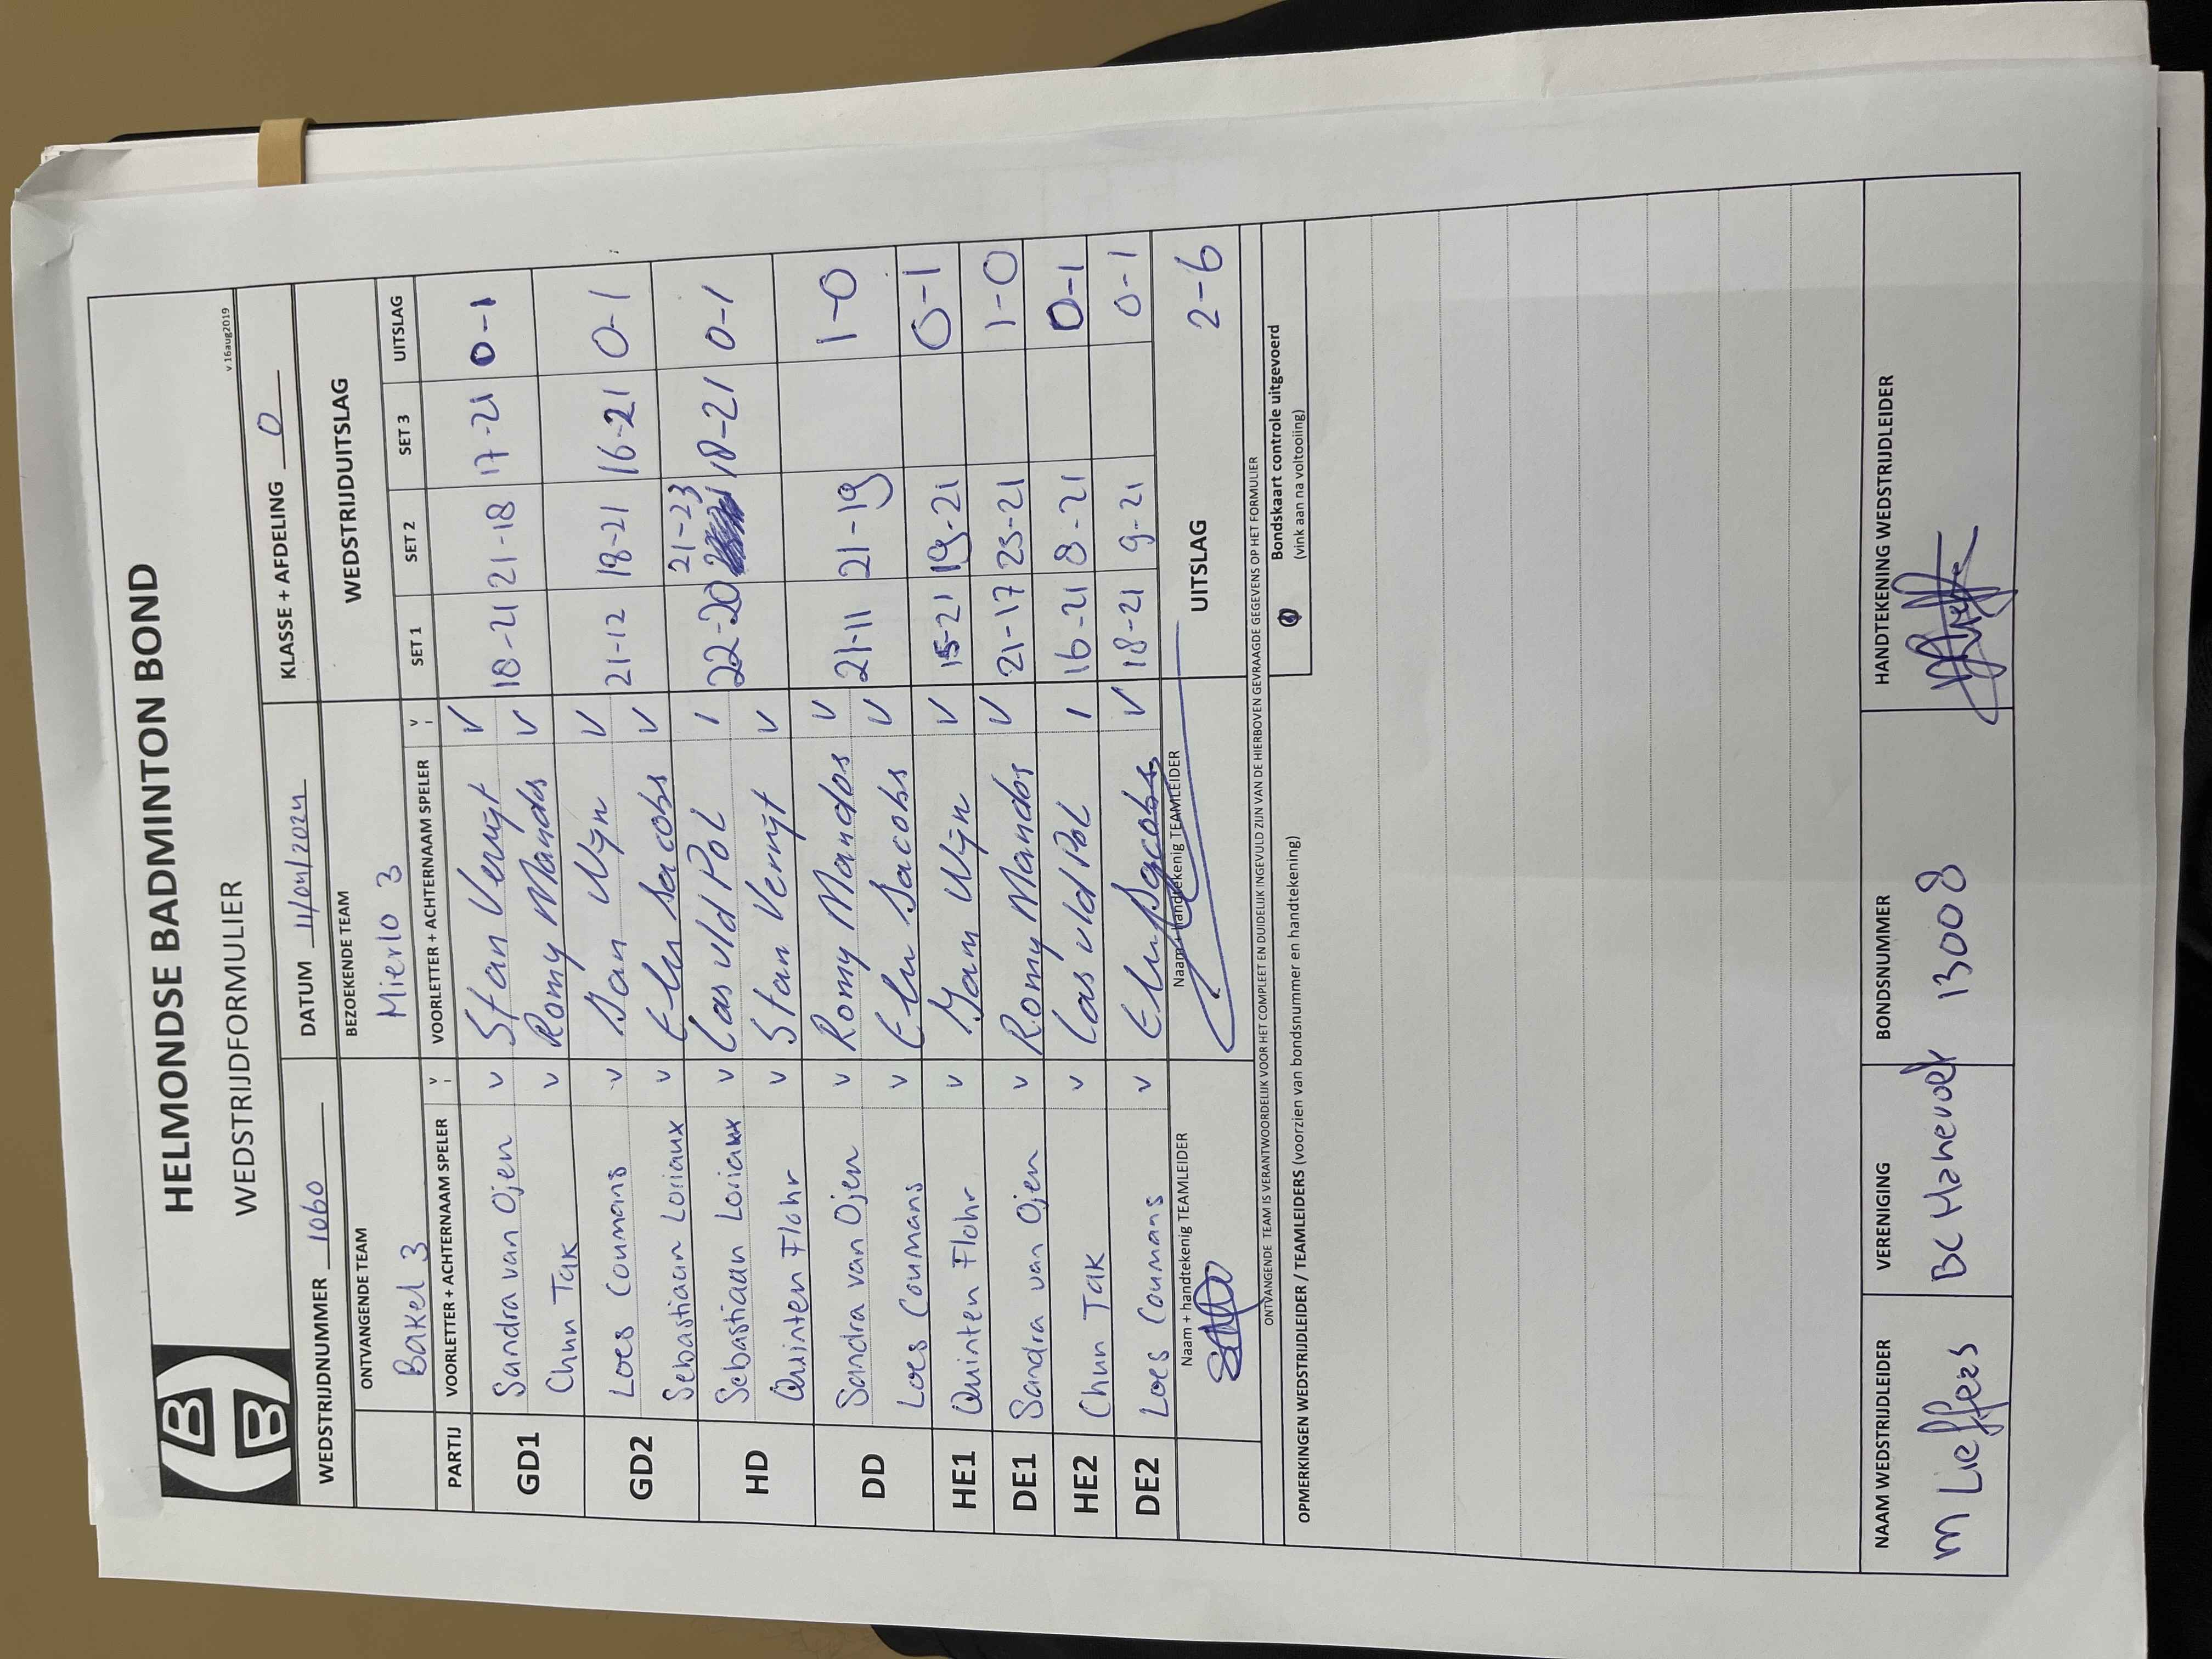 HELMONDSE BADMINTON BOND
WEDSTRIJDFORMULIER
v.16aug2019
WEDSTRIJDNUMMER 1060 DATUM 11/04/2024 KLASSE + AFDELING 0
ONTVANGENDE TEAM BEZOEKENDE TEAM WEDSTRIJDUITSLAG
Bakel 3 Mierlo 3
PARTIJ VOORLETTER + ACHTERNAAM SPELER V VOORLETTER + ACHTERNAAM SPELER V SET 1 SET 2 SET 3 UITSLAG
GD1 Sandra van Ojen v Stan Verrijt V 18-21 21-18 17-21 0-1
Chun Tak v Romy Mandos V
GD2 Loes Coumans v V 21-12 18-21 16-21 0-1
Sebastiaan Loriaux v Jacobs V
HD Sebastiaan Loriaux v Cas vld Pol / 22-20 21-23 18-21 0-1
Quinten Flohr v Stan Verrijt V
DD Sandra van Ojen v Romy Mandos V 21-11 21-19 1-0
Loes Coumans v Jacobs V
HE1 Quinten Flohr v V 15-21 19-21 0-1
DE1 Sandra van Ojen v Romy Mandos V 21-17 23-21 1-0
HE2 Chun Tak v Cas vld Pol / 16-21 8-21 0-1
DE2 Loes Coumans v Jacobs V 18-21 9-21 0-1
Naam + handtekenig TEAMLEIDER Naam + handtekenig TEAMLEIDER UITSLAG 2-6
ONTVANGENDE TEAM IS VERANTWOORDELIJK VOOR HET COMPLEET EN DUIDELIJK INGEVULD ZIJN VAN DE HIERBOVEN GEVRAAGDE GEGEVENS OP HET FORMULIER
Bondskaart controle uitgevoerd
(vink aan na voltooiing)
OPMERKINGEN WEDSTRIJDLEIDER / TEAMLEIDERS (voorzien van bondsnummer en handtekening)
NAAM WEDSTRIJDLEIDER VERENIGING BONDSNUMMER HANDTEKENING WEDSTRIJDLEIDER
M Lieffers BC 13008